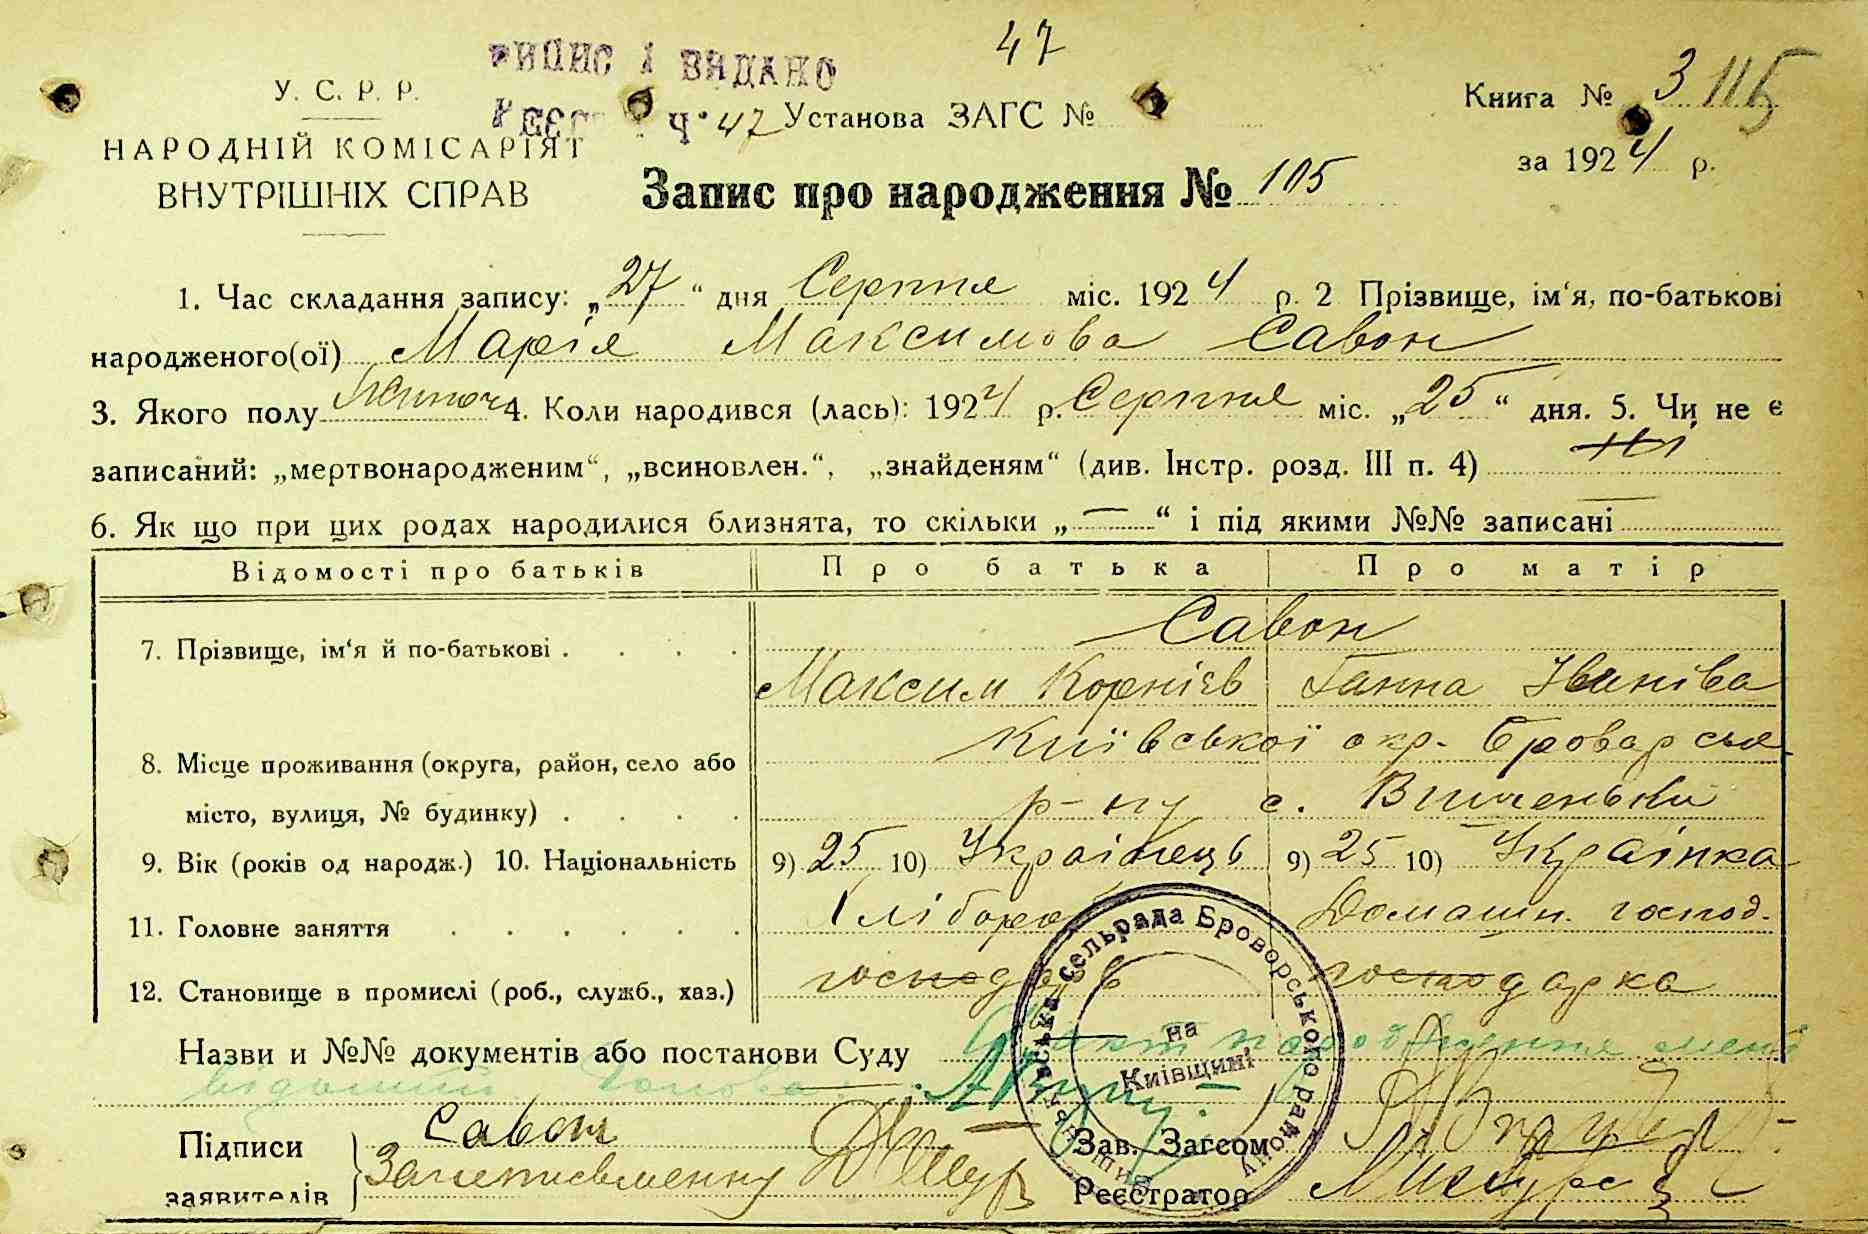 47
ВИПИС І ВИДАНО
У. С. Р. Р.
РЕЄСТ Ч. 47 Установа ЗАГС №
Книга № 3 115
НАРОДНІЙ КОМІСАРІЯТ
ВНУТРІШНІХ СПРАВ
за 1924 р.
Запис про народження № 105
1. Час складання запису: „27“ дня Серпня міс. 1924 р. 2 Прізвище, ім‘я, по-батькові
народженого(ої) Марія Максимова Савон
3. Якого полу Жиноч 4. Коли народився (лась): 1924 р. Серпня міс. „25“ дня. 5. Чи не є
записаний: „мертвонародженим“, „всиновлен.“, „знайденям“ (див. Інстр. розд. III п. 4) Ні
6. Як що при цих родах народилися близнята, то скільки „—“ і під якими №№ записані —
Відомості про батьків Про батька Про матір
Савон
7. Прізвище, ім‘я й по-батькові . . . .
Максим Корнієв Ганна Іванівa
Київської окр. Броварськ
8. Місце проживання (округа, район, село або
місто, вулиця, № будинку) . . . . р-ну с. Вишеньки
9. Вік (років од народж.) 10. Національність 9) 25 10) Українець 9) 25 10) Українка
11. Головне заняття . . . . . . Хлібороб Домашн. господ.
12. Становище в промислі (роб., служб., хаз.) господарь господарка
Назви и №№ документів або постанови Суду Факт народження мені
відомий
Підписи
заявителів
Савон
За неписьменну
Зав. Загсом
Реєстратор
сельрада Броворського району
на
Київщині